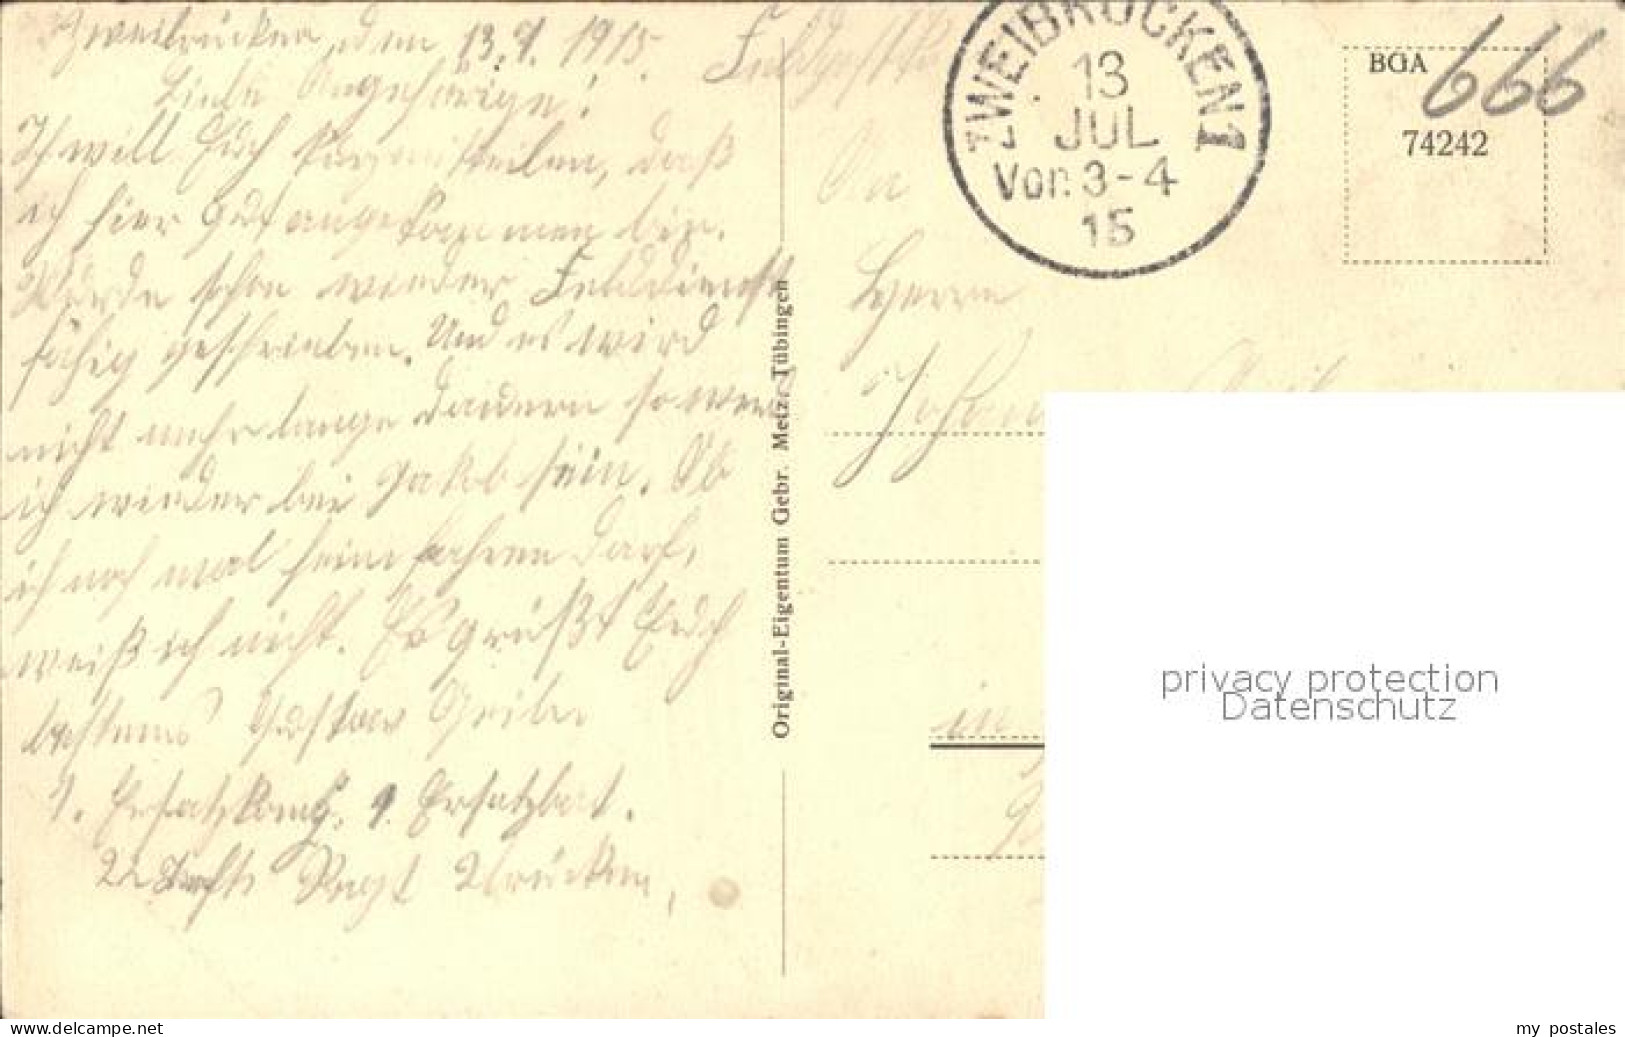 Zweibrücken, den 13.7.1915.
Liebe Angehörige!
Ich will Euch kurz mitteilen, daß
ich hier gut angekommen bin.
Wurde schon wieder Felddienst
fähig geschrieben. Und es wird
nicht mehr lange dauern so wer
ich wieder bei Jakob sein. Ob
ich noch mal heim fahren darf,
weiß ich nicht. Es grüßt Euch
bestens Gustav Geiler
1. Ersatzkomp. 1. Ersatzbat.
22 Inft. Regt Zbrücken,
Original-Eigentum Gebr. Metz, Tübingen
Feldpostk
ZWEIBRÜCKEN 1
13
JUL
Vor. 3-4
15
BGA
74242
666
An
Herrn
Johan
in
privacy protection
Datenschutz
www.delcampe.net
my_postales